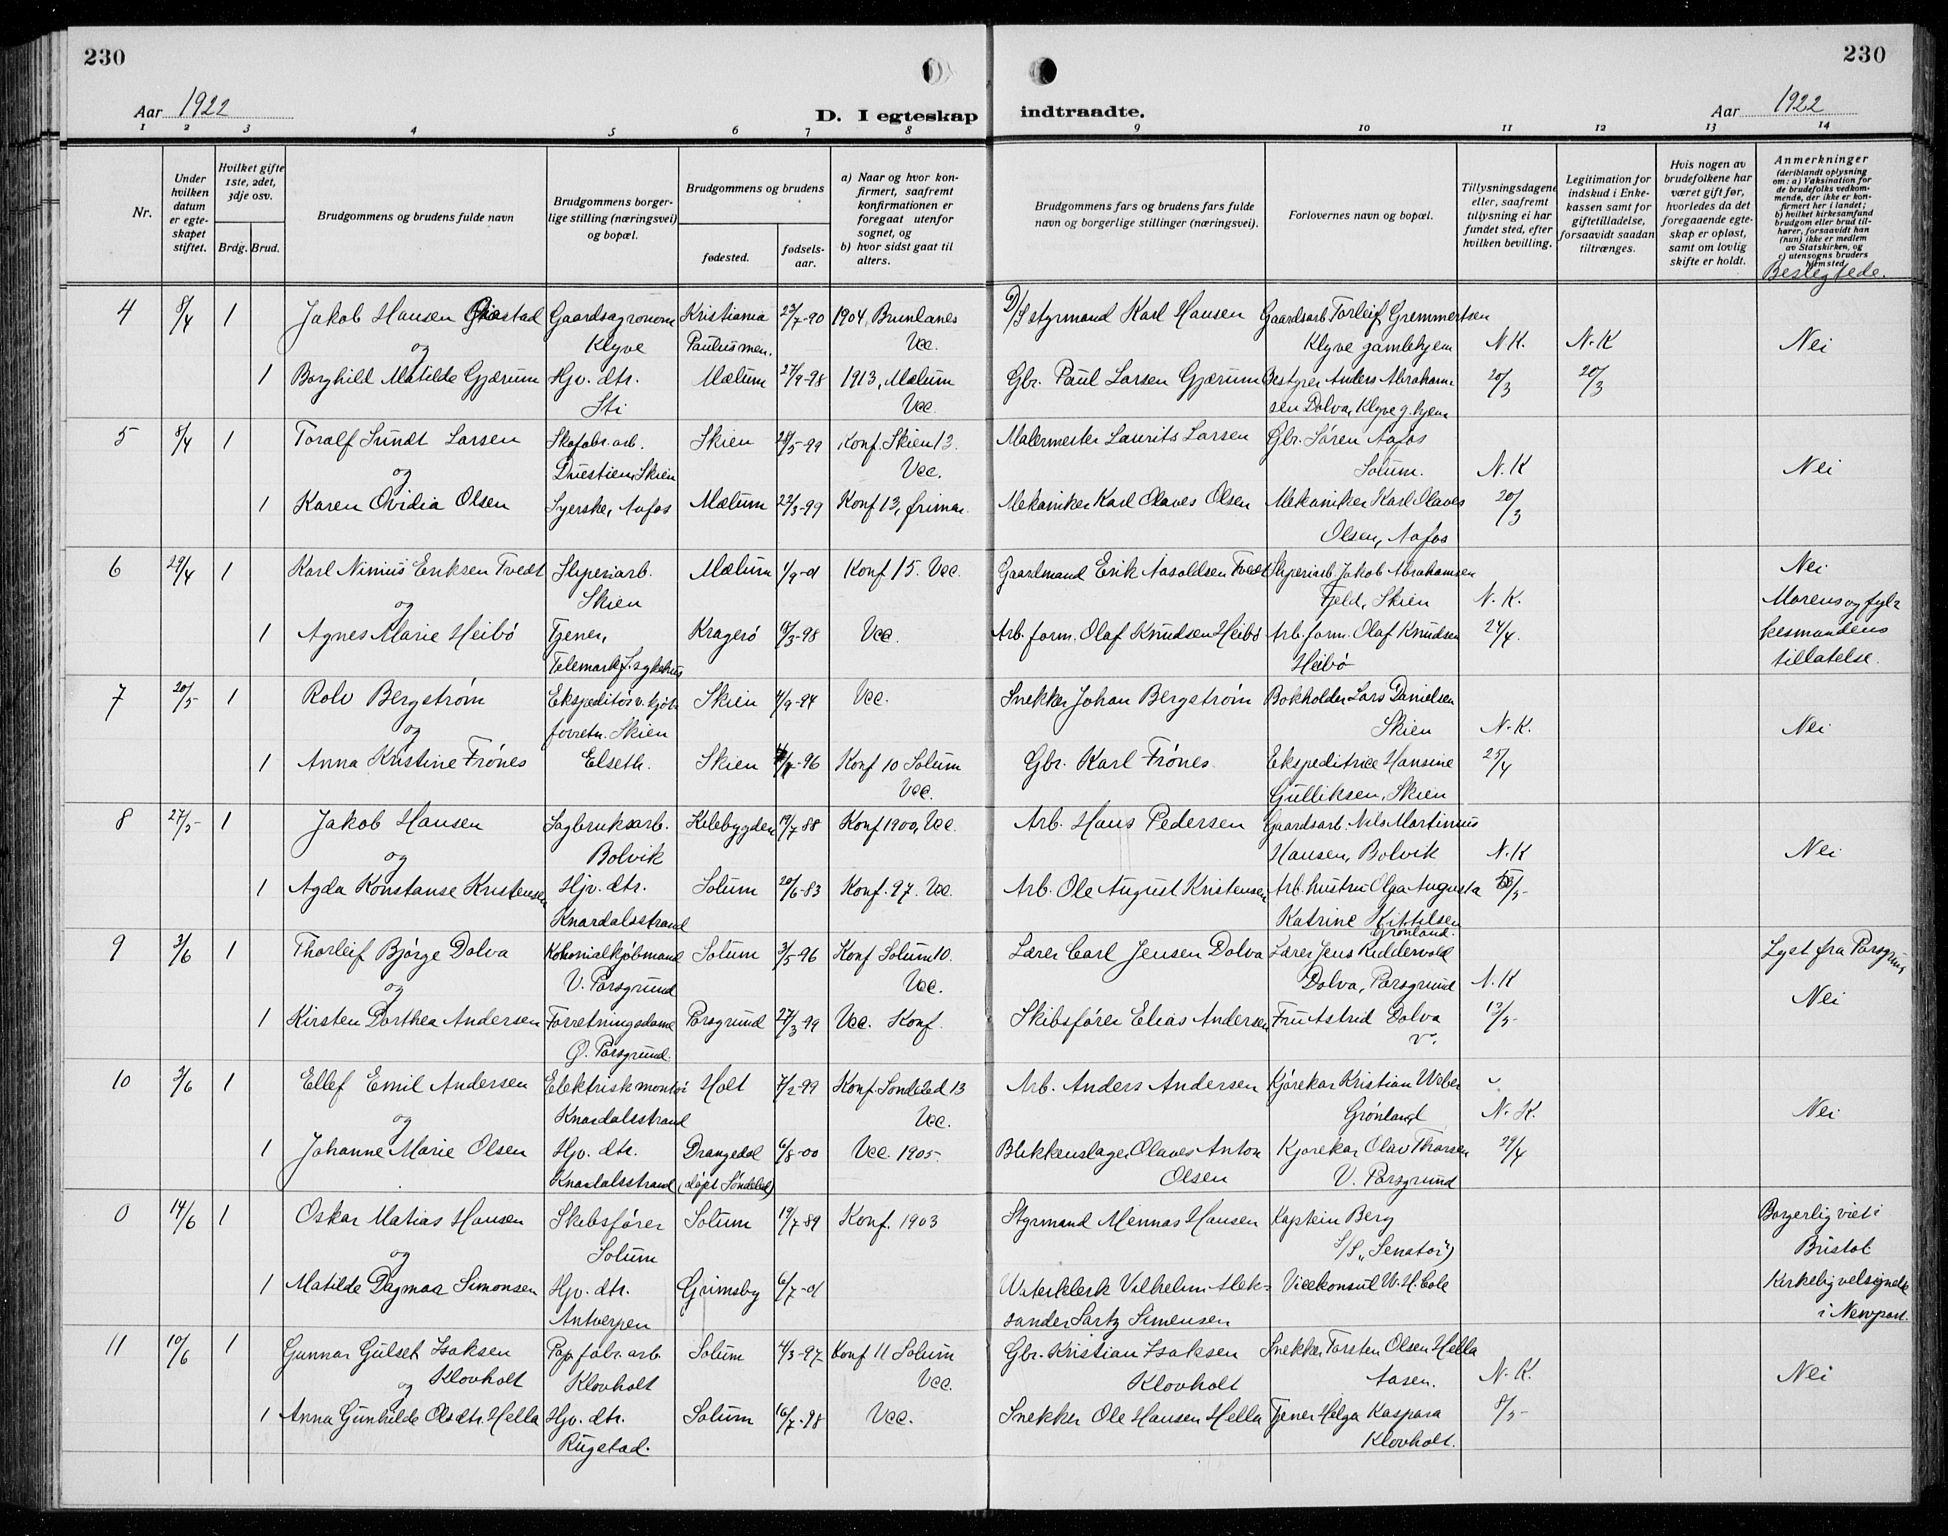 230
230
Aar 1922
D. I egteskap indtraadte.
Aar 1922
1 2 3 4 5 6 7 8 9 10 11 12 13 14
Nr.
Under hvilken datum er egteskapet stiftet.
Hvilket gifte 1ste, 2det, 3dje osv.
Brdg. Brud.
Brudgommens og brudens fulde navn
Brudgommens borgerlige stilling (næringsvei) og bopæl.
Brudgommens og brudens
fødested.
fødselsaar.
a) Naar og hvor konfirmert, saafremt konfirmationen er foregaat utenfor sognet, og
b) hvor sidst gaat til alters.
Brudgommens fars og brudens fars fulde navn og borgerlige stillinger (næringsvei).
Forlovernes navn og bopæl.
Tillysningsdagene eller, saafremt tillysning ei har fundet sted, efter hvilken bevilling.
Legitimation for indskud i Enkekassen samt for giftetilladelse, forsaavidt saadan tiltrænges.
Hvis nogen av brudefolkene har været gift før, hvorledes da det foregaaende egteskap er opløst, samt om lovlig skifte er holdt.
Anmerkninger
(deriblandt oplysning om: a) Vaksination for de brudefolks vedkommende, der ikke er konfirmert her i landet;
b) hvilket kirkesamfund brudgom eller brud tilhører, forsaavidt han (hun) ikke er medlem av Statskirken, og
c) utensogns bruders hjemsted.
Beslegtede.
4 8/4 1 Jakob Hansen Gaardsagronom Kristiania 23/7-90 1904, Brunlanes D/S styrmand Karl Hansen Gaardsarb. Torleif Gremmertsen
og Klyve Paulus men. Vee. Klyve gamlehjem N.K. N.K Nei
1 Borghild Matilde Gjærum Hjv. dtr. Mælum 27/9-98 1913, Mælum Gbr. Paul Larsen Gjærum Bestyrer Anders Abraham 20/3 20/3
Sti Vee. sen Dolva, Klyve g. hjem
5 8/4 1 Toralf Sundt Larsen Skofabr. arb. Skien 28/5-99 Konf. Skien 13. Malermester Laurits Larsen Gbr. Søren Aafos
og Skien Vee. Solum. N.K Nei
1 Karen Ovidia Olsen Syerske, Aafos Mælum 22/3-99 Konf 13, Mekaniker Karl Olaves Olsen Mekaniker Karl Olaves 20/3
Olsen, Aafos
6 29/4 1 Karl Nimius Eriksen Tvedt Sliperiarb. Mælum 1/9-01 Konf 15. Vee. Gaardmand Erik Aasoldsen Tvedt Sliperiarb Jakob Abrahamsen Nei
og Skien Fjeld, Skien N.K. Morens og fyl=
1 Agnes Marie Heibø Tjener, Kragerø 18/3-98 Vee. Arb. form. Olaf Knudsen Heibø Arb. form. Olaf Knudsen 24/4. kesmandens
Telemark f. sykehus Heibø tillatelse.
7 20/5 1 Rolv Bergstrøm Ekspeditør v. kjøtt Skien 4/9-94 Vee. Snekker Johan Bergstrøm Bokholder Lars Danielsen
og forretn. Skien Skien N.K. Nei
1 Anna Kristine Frønes Elseth. Skien -96 Konf 10 Solum Gbr. Karl Frønes. Ekspeditrice Hansine 25/4
Vee. Gulliksen, Skien
8 27/5 1 Jakob Hansen Sagbruksarb. Kilebygden 19/7 88 Konf 1900, Vee. Arb. Hans Pedersen Gaardsarb. Nils Martinius
og Bolvik Hansen, Bolvik N.K Nei
1 Agda Konstanse Kristensen Hjv. dtr. Solum 20/6-83 Konf. 97. Vee. Arb. Ole August Kristensen Arb. hustru Olga Augusta
Knardalsstrand Katrine Kittilsen
Grønland.
9 3/6 1 Thorleif Bjørge Dolva Kolonialkjøbmand Solum 3/5-96 Konf Solum 10. Lærer Carl Jensen Dolva Lærer Jens Riddervold Lyst fra Porsgrund
og V. Porsgrund Vee. Dolva, Porsgrund N.K
1 Kirsten Dorthea Andersen Forretningsdame Porsgrund 27/3-99 Vee. Konf. Skibsfører Elias Andersen Fru Astrid Dolva 13/5- Nei
Ø. Porsgrund. V.
10 3/6 1 Ellef Emil Andersen Elektriskmontør Holt 7/2-99 Konf. Søndeled 13 Arb. Anders Andersen Kjørekar Kristian Weber
og Knardalsstrand Vee. Grønland N.K. Nei
1 Johanne Marie Olsen Hjv. dtr. Drangedal 6/8-00 Vee. 1905. Blikkenslager Olaves Anton Kjørekar Olav Thorsen 29/4
Knardalsstrand (døpt Søndeled) Olsen V. Porsgrund
0 14/6 1 Oskar Matias Hansen Skibsfører Solum 19/7 89 Konf. 1903 Styrmand Mennas Hansen Kaptein Berg Borgerlig viet i
og Solum S/S "Senator") Bristol
1 Matilde Dagmar Simonsen Hjv. dtr. Grimsby 6/7-01 Waterklerk Vilhelm Alek= Vicekonsul W. H. Cole Kirkelig velsignede
Antwerpen sander Sartz Simensen i Newport.
11 10/6 1 Gunnar Gulset Isaksen Pap. fabr. arb. Solum 4/3-97- Konf 11 Solum Gbr. Kristian Isaksen Snekker Torsten Olsen Hella
og Klovholt Klovholt Vee. Klovholt Aasen. N.K. Nei
1 Anna Gunhilde Olsdtr. Hella Hjv. dtr. Solum 16/7-98 Vee. Snekker Ole Hansen Hella Tjener Helga Kaspara 8/5-
Rugstad. Klovholt.